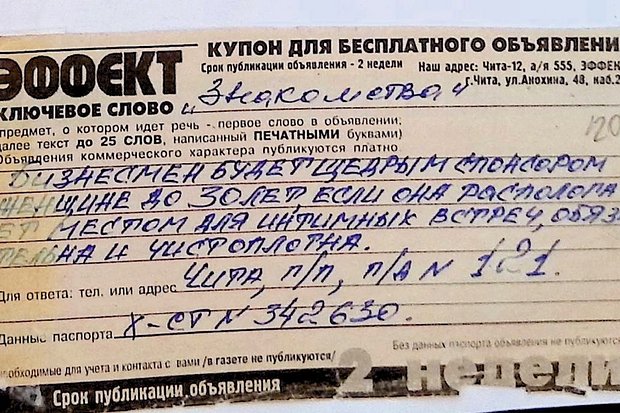 ЭФФЕКТ
КУПОН ДЛЯ БЕСПЛАТНОГО ОБЪЯВЛЕНИ
Срок публикации объявления - 2 недели
Наш адрес: Чита-12, а/я 555, ЭФФЕК
г.Чита, ул.Анохина, 48, каб.2
КЛЮЧЕВОЕ СЛОВО „Знакомства"
(предмет, о котором идет речь - первое слово в объявлении;
далее текст до 25 СЛОВ, написанный ПЕЧАТНЫМИ буквами)
Объявления коммерческого характера публикуются платно
БИЗНЕСМЕН БУДЕТ ЩЕДРЫМ СПОНСОРОМ
ЖЕНЩИНЕ ДО 30 ЛЕТ, ЕСЛИ ОНА РАСПОЛОГА
ЕТ МЕСТОМ ДЛЯ ИНТИМНЫХ ВСТРЕЧ, ОБЯЗА
ТЕЛЬНА И ЧИСТОПЛОТНА.
Для ответа: тел. или адрес ЧИТА, П/П, П/А N 121.
Данные паспорта X-СТ N 342630.
Без данных паспорта объявления не публикуются
необходимые для учета и контакта с вами /в газете не публикуются/
Срок публикации объявления 2 недели